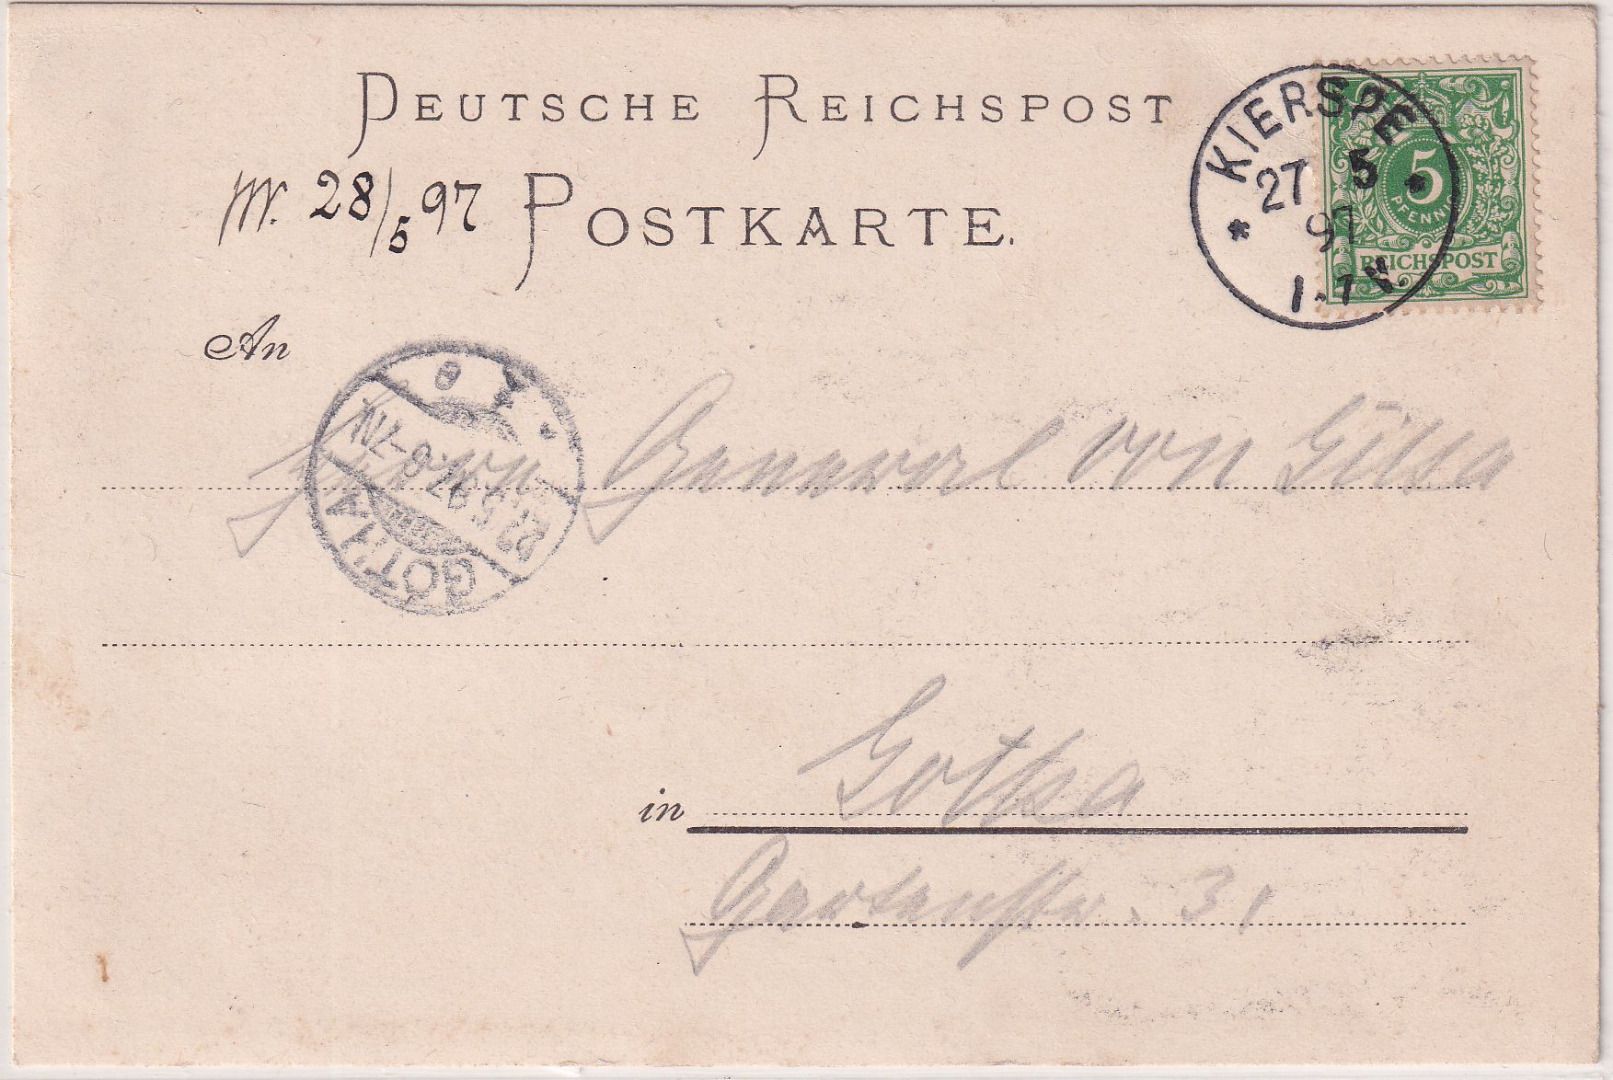 DEUTSCHE REICHSPOST
28/5 97 POSTKARTE.
KIERSPE
27 5
97
1-7 N.
5
PFENNIG
REICHSPOST
An
GOTHA
97. 6-7N
Herrn General von Gilsa
in Gotha
Gartenstr. 31